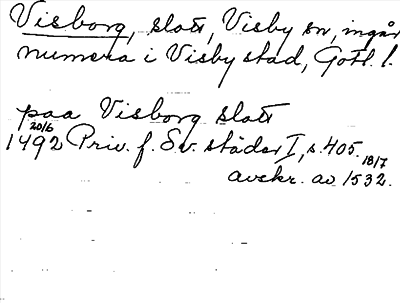 Visborg, slott, Visby sn, ingår
numera i Visby stad, Gotl. l.
paa Visborg slott
20/6
1492 Priv. f. Sv. städer I, s. 405.
18/7
avskr. av 1532.